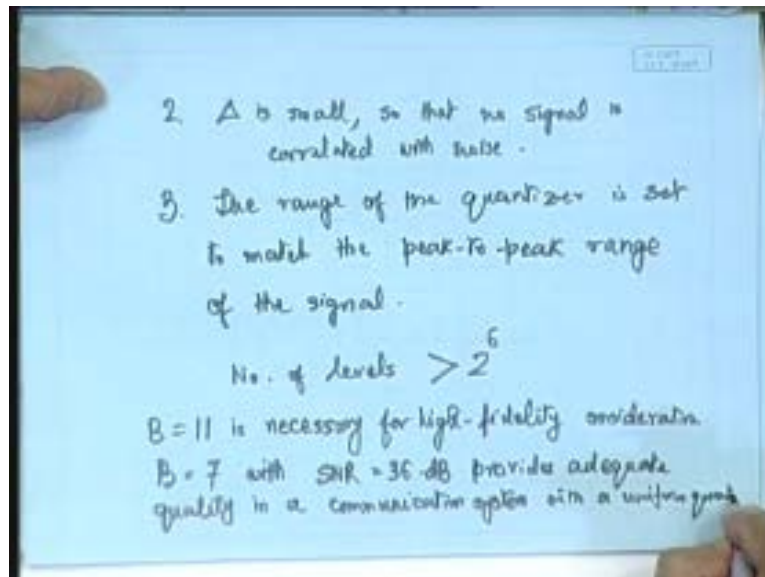 2. Δ is small, so that no signal is
correlated with noise.
3. The range of the quantizer is set
to match the peak-to-peak range
of the signal.
No. of levels > 2^6
B = 11 is necessary for high-fidelity consideration
B = 7 with SNR = 36 dB provides adequate
quality in a communication system with a uniform